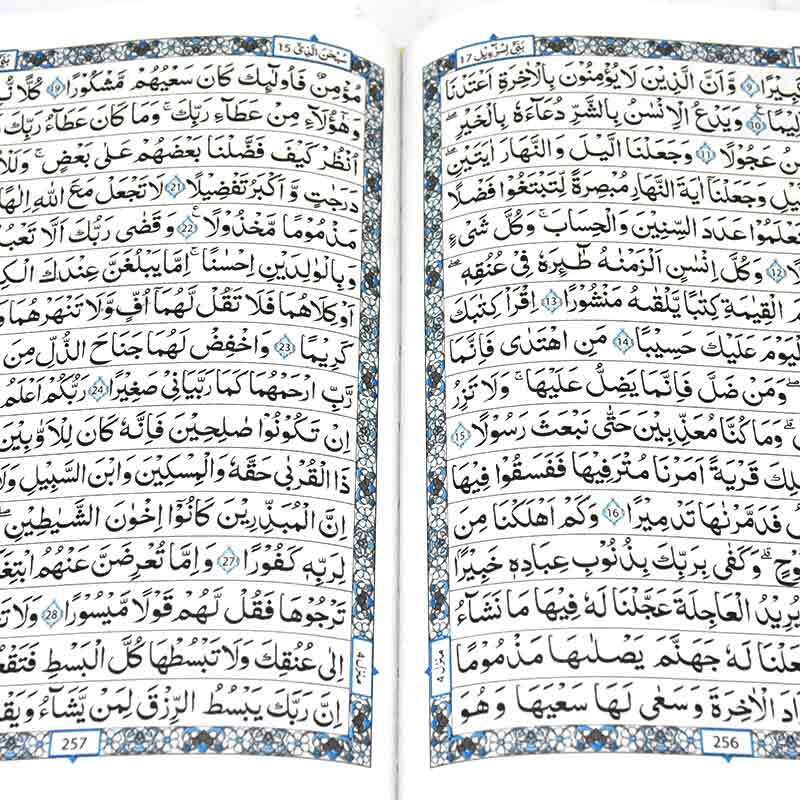 بَنِیْٓ اِسْرَآءِیْل 17
كَبِيْرًا ﴿9﴾ وَّاَنَّ الَّذِيْنَ لَا يُؤْمِنُوْنَ بِالْاٰخِرَةِ اَعْتَدْنَا
اَلِيْمًا ﴿10﴾ وَيَدْعُ الْاِنْسٰنُ بِالشَّرِّ دُعَآءَهٗ بِالْخَيْرِ ؕ
عَجُوْلًا ﴿11﴾ وَجَعَلْنَا الَّيْلَ وَالنَّهَارَ اٰيَتَيْنِ
وَجَعَلْنَآ اٰيَةَ النَّهَارِ مُبْصِرَةً لِّتَبْتَغُوْا فَضْلًا
وَلِتَعْلَمُوْا عَدَدَ السِّنِيْنَ وَالْحِسَابَ ؕ وَكُلَّ شَيْءٍ
﴿12﴾ وَكُلَّ اِنْسٰنٍ اَلْزَمْنٰهُ طٰٓئِرَهٗ فِيْ عُنُقِهٖ ؕ
الْقِيٰمَةِ كِتٰبًا يَّلْقٰىهُ مَنْشُوْرًا ﴿13﴾ اِقْرَاْ كِتٰبَكَ
الْيَوْمَ عَلَيْكَ حَسِيْبًا ﴿14﴾ مَنِ اهْتَدٰى فَاِنَّمَا
وَمَنْ ضَلَّ فَاِنَّمَا يَضِلُّ عَلَيْهَا ؕ وَلَا تَزِرُ
وَمَا كُنَّا مُعَذِّبِيْنَ حَتّٰى نَبْعَثَ رَسُوْلًا ﴿15﴾
نُّهْلِكَ قَرْيَةً اَمَرْنَا مُتْرَفِيْهَا فَفَسَقُوْا فِيْهَا
فَدَمَّرْنٰهَا تَدْمِيْرًا ﴿16﴾ وَكَمْ اَهْلَكْنَا مِنَ
نُوْحٍ ؕ وَكَفٰى بِرَبِّكَ بِذُنُوْبِ عِبَادِهٖ خَبِيْرًا
يُرِيْدُ الْعَاجِلَةَ عَجَّلْنَا لَهٗ فِيْهَا مَا نَشَآءُ
جَعَلْنَا لَهٗ جَهَنَّمَ يَصْلٰىهَا مَذْمُوْمًا
اَرَادَ الْاٰخِرَةَ وَسَعٰى لَهَا سَعْيَهَا وَهُوَ
منزل ٤
256
سُبْحٰنَ الَّذِیْٓ 15
مُؤْمِنٌ فَاُولٰٓئِكَ كَانَ سَعْيُهُمْ مَّشْكُوْرًا ﴿19﴾ كُلًّا
وَهٰٓؤُلَآءِ مِنْ عَطَآءِ رَبِّكَ ؕ وَمَا كَانَ عَطَآءُ رَبِّكَ
اُنْظُرْ كَيْفَ فَضَّلْنَا بَعْضَهُمْ عَلٰى بَعْضٍ ؕ
دَرَجٰتٍ وَّاَكْبَرُ تَفْضِيْلًا ﴿21﴾ لَا تَجْعَلْ مَعَ اللّٰهِ اِلٰهًا
مَذْمُوْمًا مَّخْذُوْلًا ﴿22﴾ وَقَضٰى رَبُّكَ اَلَّا
وَبِالْوَالِدَيْنِ اِحْسٰنًا ؕ اِمَّا يَبْلُغَنَّ عِنْدَكَ
اَوْ كِلٰهُمَا فَلَا تَقُلْ لَّهُمَآ اُفٍّ وَّلَا تَنْهَرْهُمَا
كَرِيْمًا ﴿23﴾ وَاخْفِضْ لَهُمَا جَنَاحَ الذُّلِّ مِنَ
رَّبِّ ارْحَمْهُمَا كَمَا رَبَّيٰنِيْ صَغِيْرًا ﴿24﴾ رَبُّكُمْ اَعْلَمُ
اِنْ تَكُوْنُوْا صٰلِحِيْنَ فَاِنَّهٗ كَانَ لِلْاَوَّابِيْنَ
ذَا الْقُرْبٰى حَقَّهٗ وَالْمِسْكِيْنَ وَابْنَ السَّبِيْلِ وَلَا
اِنَّ الْمُبَذِّرِيْنَ كَانُوْٓا اِخْوَانَ الشَّيٰطِيْنِ ؕ
لِرَبِّهٖ كَفُوْرًا ﴿27﴾ وَاِمَّا تُعْرِضَنَّ عَنْهُمُ
تَرْجُوْهَا فَقُلْ لَّهُمْ قَوْلًا مَّيْسُوْرًا ﴿28﴾ وَلَا
اِلٰى عُنُقِكَ وَلَا تَبْسُطْهَا كُلَّ الْبَسْطِ
اِنَّ رَبَّكَ يَبْسُطُ الرِّزْقَ لِمَنْ يَّشَآءُ
منزل ٤
257